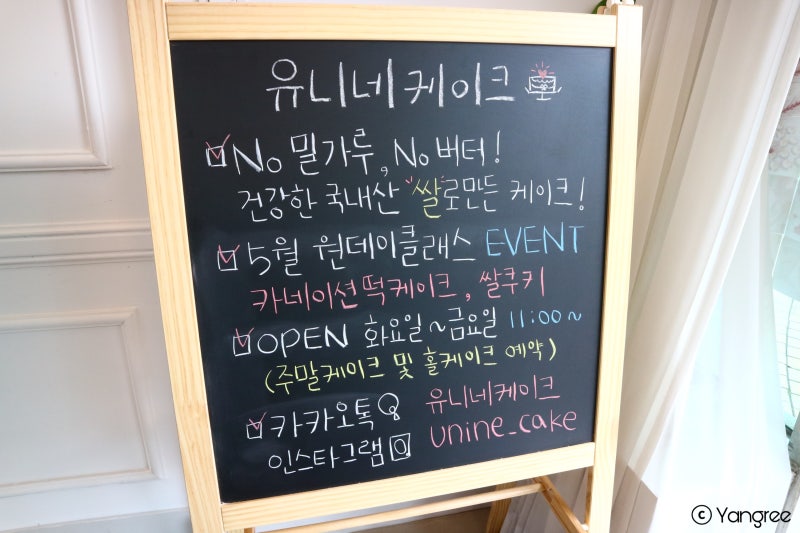 유니네 케이크
No 밀가루, No 버터!
건강한 국내산 "쌀"로만든 케이크!
5월 원데이클래스 EVENT
카네이션떡케이크, 쌀쿠키
OPEN 화요일~금요일 11:00~
(주말케이크 및 홀케이크 예약)
카카오톡 유니네케이크
인스타그램 unine_cake
ⓒ Yangree